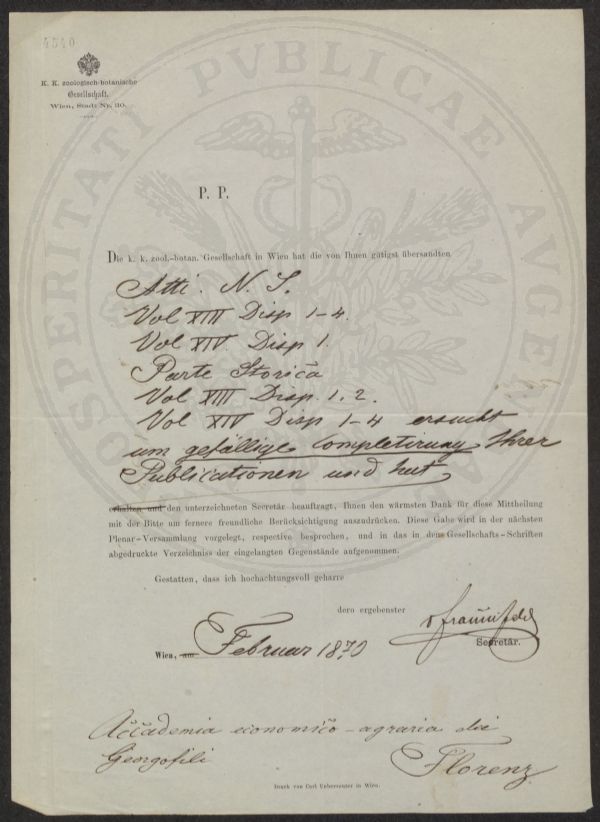 4540
K. K. zoologisch-botanische
Gesellschaft.
Wien, Stadt Nr. 110.
PROSPERITATI PVBLICAE AVGEN
P. P.
Die k. k. zool.-botan. Gesellschaft in Wien hat die von Ihnen gütigst übersandten
Atti. N. S.
Vol XIII Disp 1-4.
Vol XIV. Disp 1.
Parte Storica
Vol XIII Disp. 1, 2.
Vol XIV Disp 1-4 ersucht
um gefällige Completirung Ihrer
Publicationen und hat
erhalten und den unterzeichneten Secretär beauftragt, Ihnen den wärmsten Dank für diese Mittheilung
mit der Bitte um fernere freundliche Berücksichtigung auszudrücken. Diese Gabe wird in der nächsten
Plenar-Versammlung vorgelegt, respective besprochen, und in das in den Gesellschafts-Schriften
abgedruckte Verzeichniss der eingelangten Gegenstände aufgenommen.
Gestatten, dass ich hochachtungsvoll geharre
dero ergebenster
v Frauenfeld
Secretär.
Wien, am Februar 1870
Accademia economico-agraria dei
Georgofili
Florenz
Druck von Carl Ueberreuter in Wien.